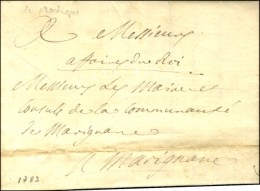 A Messieurs
affaires du Roi
Messieurs Les Maire et
Consuls de la Communauté
de Marignane
A Marignane
1783